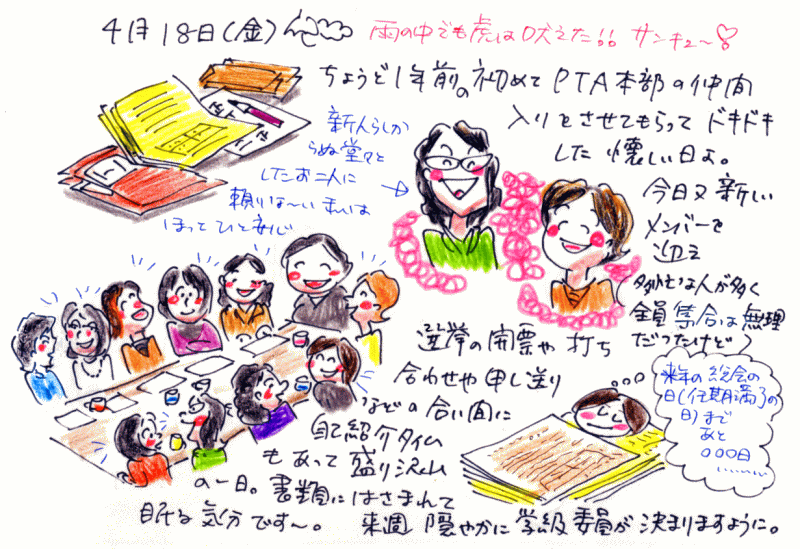 4月18日(金)
雨の中でも虎は吠えた!! サンキュ〜
ちょうど1年前。初めてPTA本部の仲間
入りをさせてもらって ドキドキ
した 懐しい日よ。
新人らしか
らぬ堂々と
したお二人に
頼りな〜い私は
ほっとひと安心
今日又新しい
メンバーを
迎え
多忙な人が多く
全員集合は無理
だったけど
選挙の開票や打ち
合わせや申し送り
などの合い間に
自己紹介タイム
もあって盛り沢山
の一日。書類にはさまれて
眠な気分です〜。
来年の総会の
日(任期満了の
日)まで
あと
○○○日
…………
来週 穏やかに 学級委員が 決まりますように。